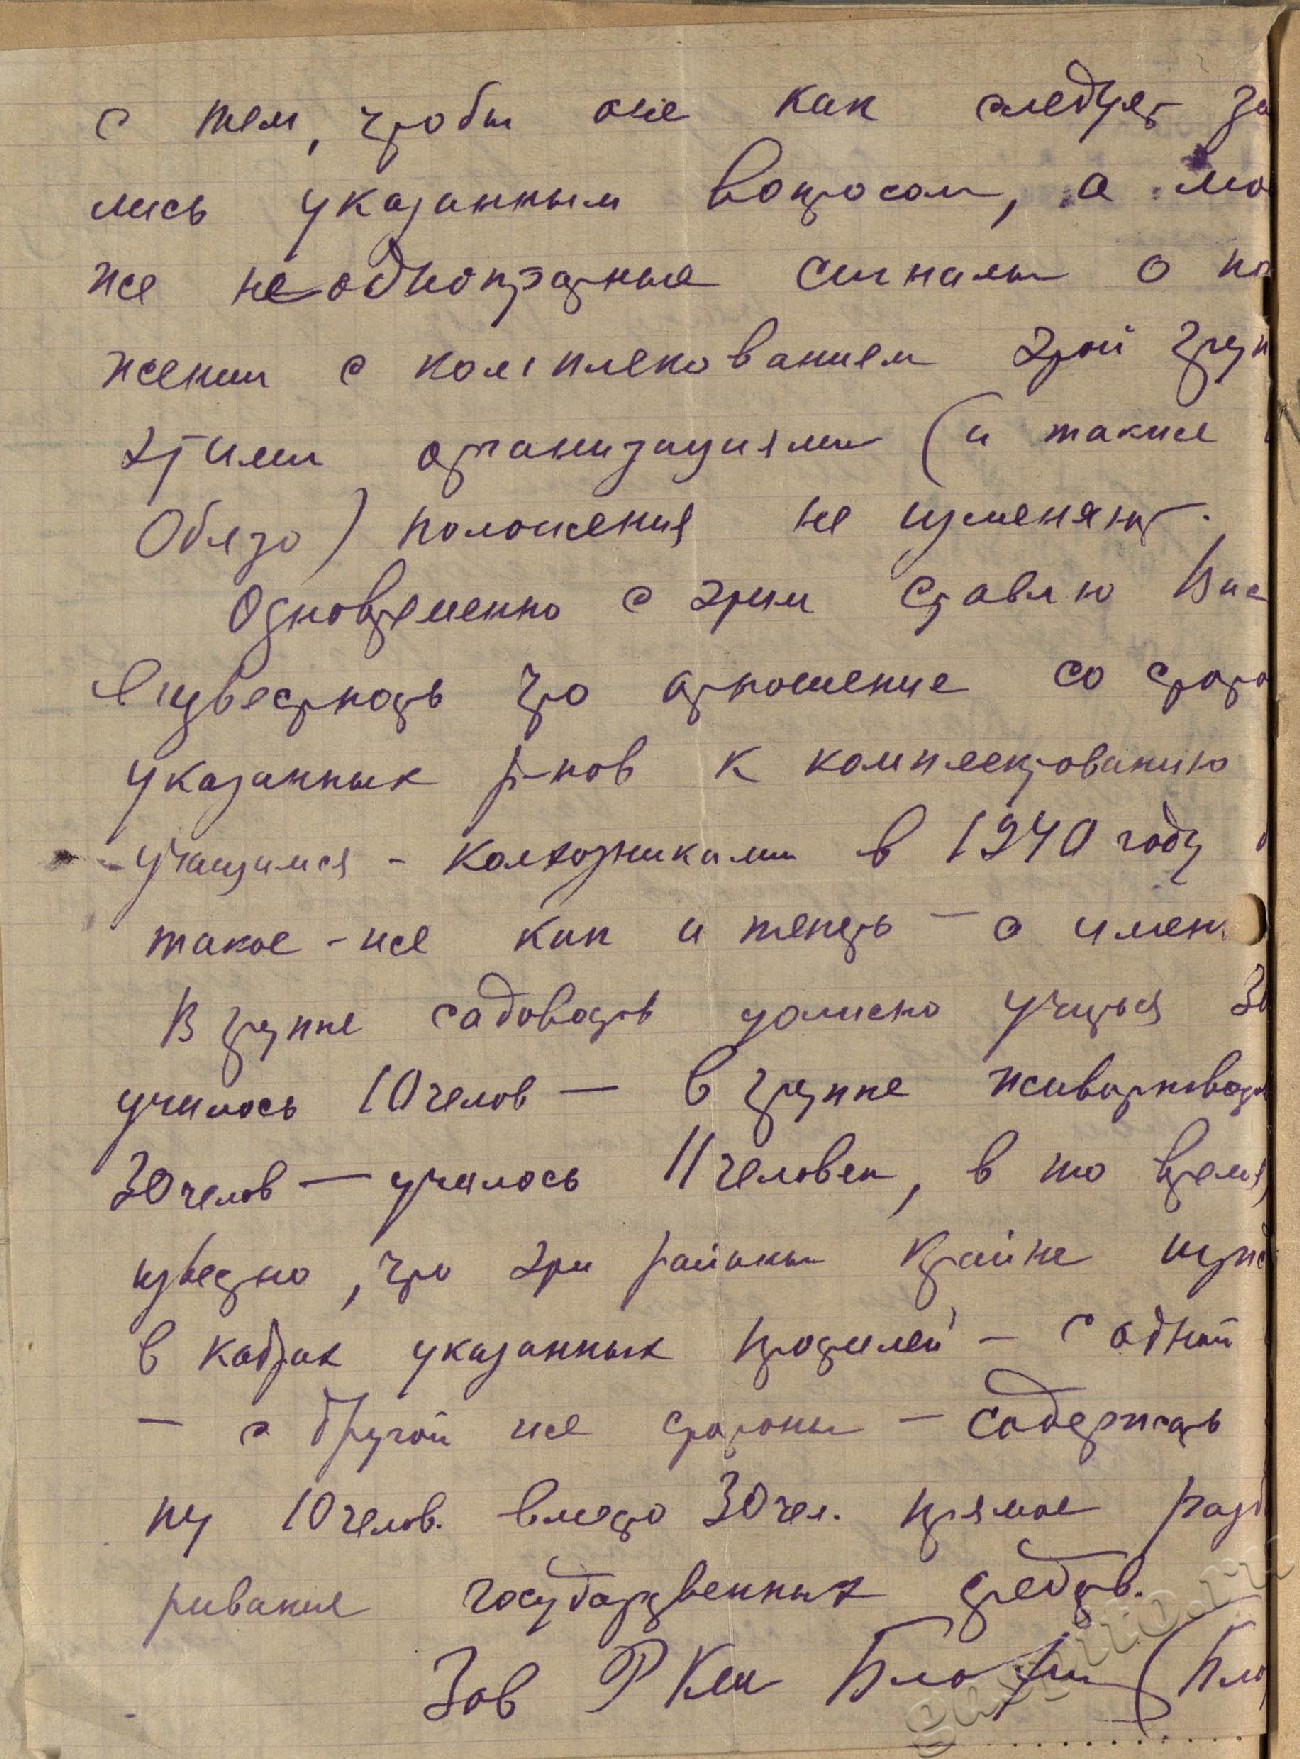 с тем, чтобы оне как следует за
лись указанным вопросом, а та
же неоднократные сигналы о по
жении с комплекованием этой груп
этими организациями (и также
Облзо) положения не изменяют.
Одновременно с этим ставлю Вас
в известность что отношение со сторо
указанных р-нов к комплектованию
учащимся - колхозниками в 1940 году
такое-же как и теперь — а имен
В группе садоводов должно учиться 30
училось 10 челов — в группе животновод
30 челов — училось 11 человек, в то время,
известно, что эти районы крайне нужд
в кадрах указанных профилей — с одной
— с другой же стороны — содержать
пу 10 челов. вместо 30 чел. прямое разб
ривание государственных средств.
Зав РКСШ
gaspito.ru